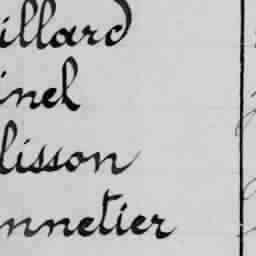 illard
inel
lisson
nnetier